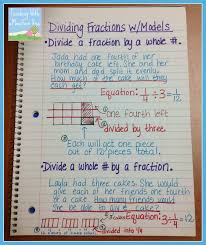 Teaching With a
Mountain View
Dividing Fractions W/Models
• Divide a fraction by a whole #.
Jada had one fourth of her
birthday cake left. She and her
mom and dad split it evenly.
How much of the cake will they
each get?
Equation: 1/4 ÷ 3 = 1/12
one fourth left
divided by three
Each will get one piece
out of 12 pieces total.
• Divide a whole # by a fraction.
Layla had three cakes. She would
give each of her friends one fourth
of a cake. How many friends would
she be able to give cake?
Equation: 3 ÷ 1/4 = 12
divided into 1/4